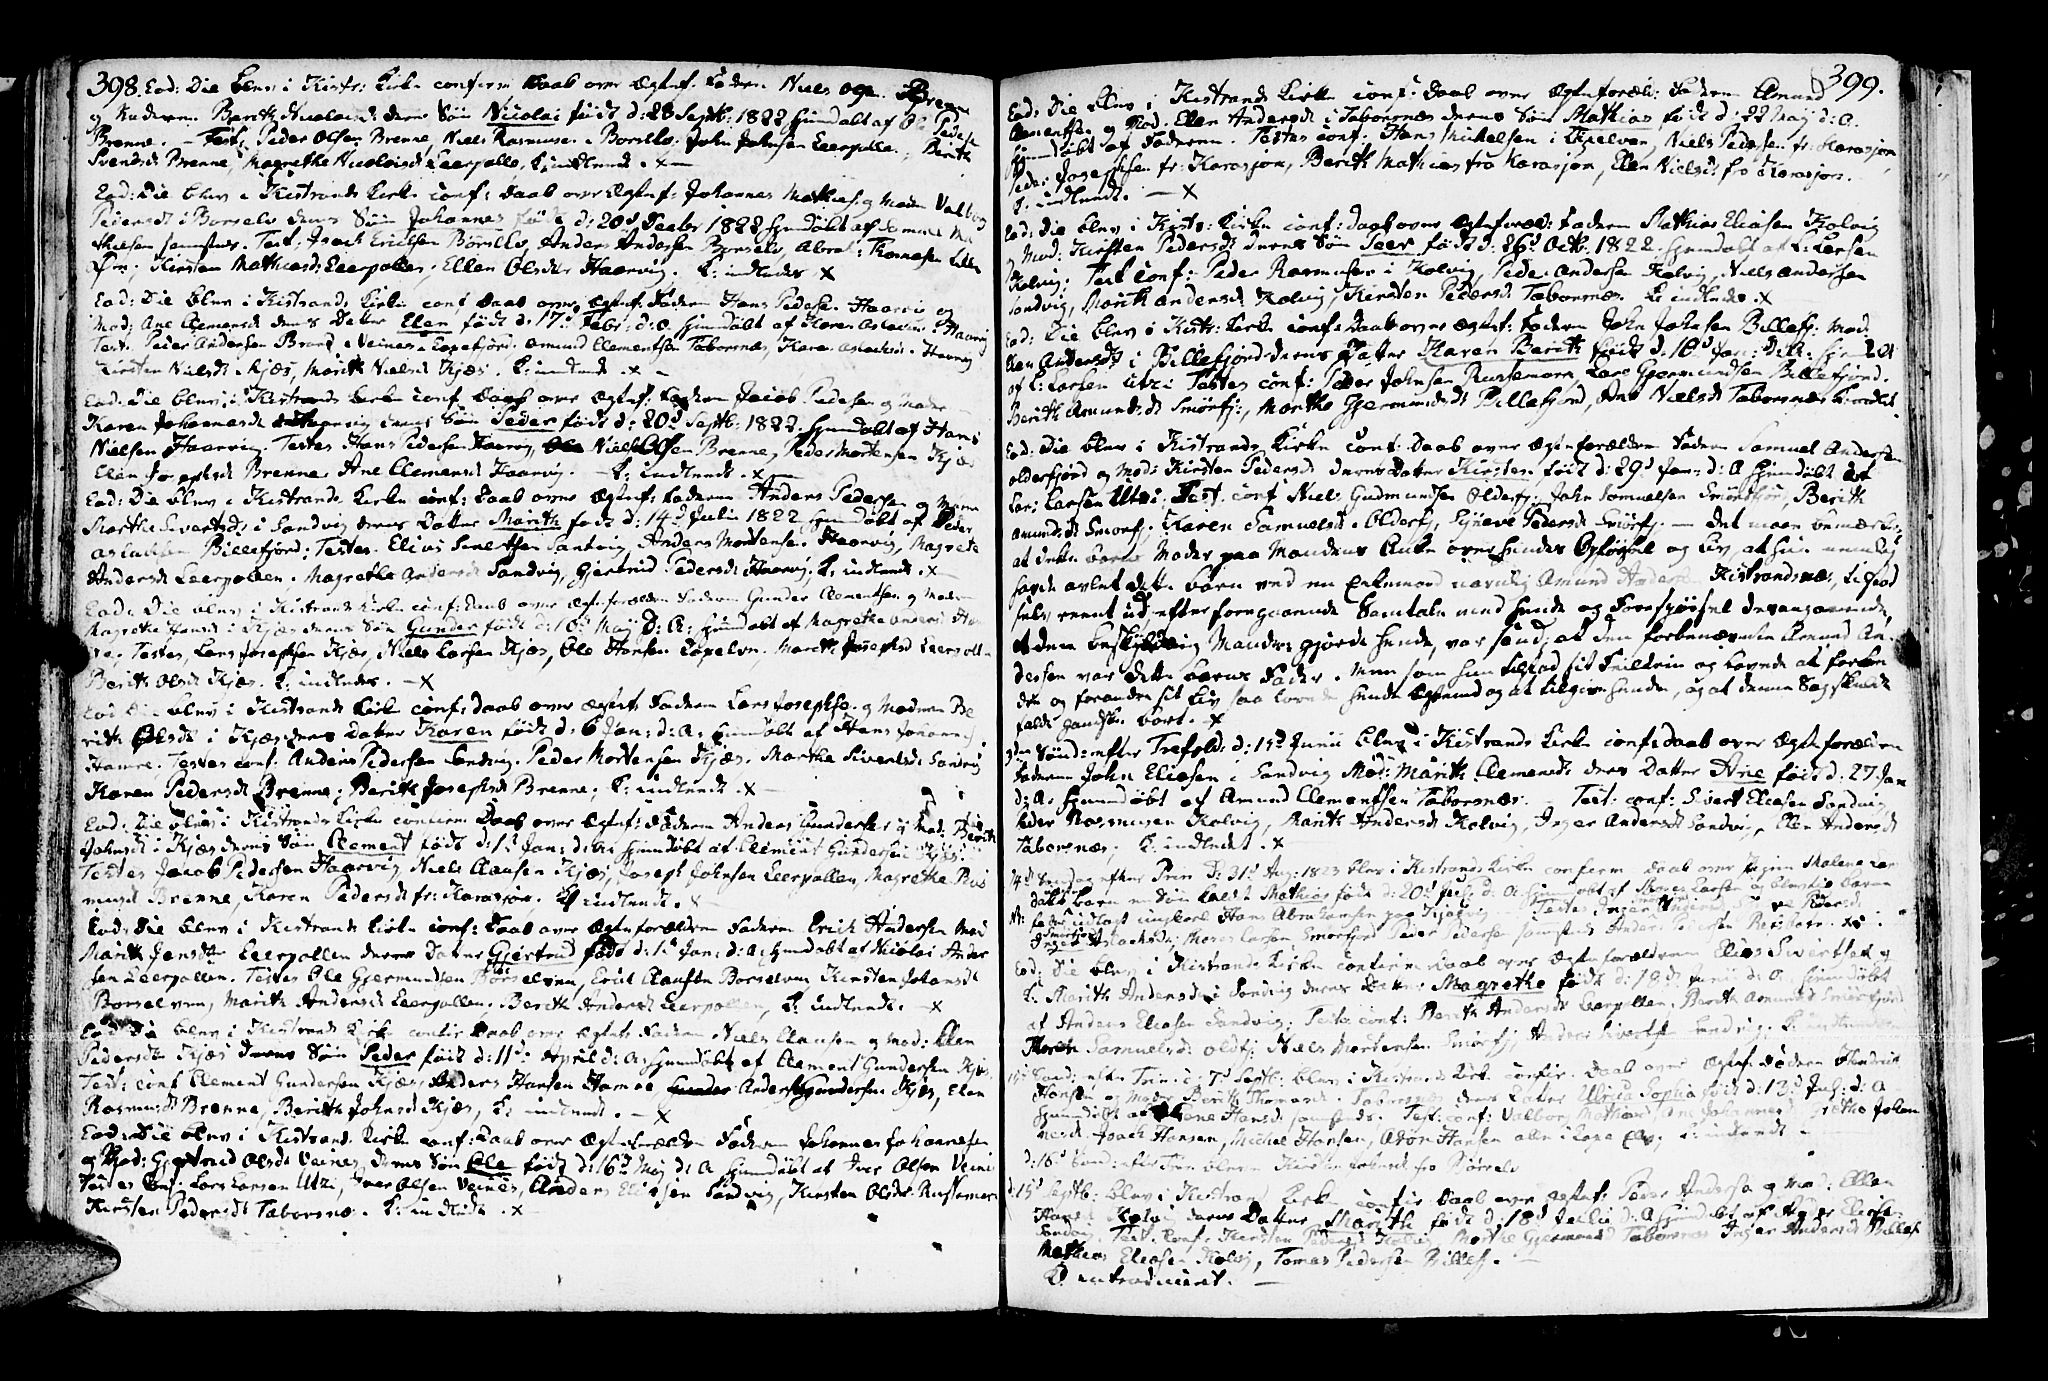 398. Eod: Die blev i Kistr: Kirke conferm Daab over Ægtef. Fadern Niels Brenne
og Moderen Berith Nicolaisd: deres Søn Nicolai født d: 28 Septb: 1822 hjemdøbt af Ole Peders
Brenne. - Test: Peder Olsen Brenne, Niels Rasmusen Borselv. John Johnsen Leerpollen, Berith
Svendsd: Brenne, Magrethe Nicolaisd: Leerpollen, K: indledt. x-
Eod: Die blev i Kistrands Kirke conf: Daab over Ægtef: Johannes Mathiesen og Moden Valborg
Pedersd: i Borselv deres Søn Johannes født d: 20d 1822 hjemdøbt af
thiesen sammest. Test: Isach Erichsen Børselv, Anders Andersen Børselv, Abrah: Thomesen
Kirsten Mathiasd: Leerpollen. Ellen Olsdtr Haarvig. K: indledes x
Eod: Die blev i Kistrands Kirke conf. Daab over Ægtef. Fadern Hans Pedersen Haarvig og
Mod: Ane Clemensd: deres Datter Elen født d: 17d Febr: d: a. hjemdøbt af Karen Aslachsd: i Haarvig
Test: Peder Andersen Brend i Veines. Amund Clementsen Tabornæs, Karen Aslachsd: Haarvig
Kirsten Nielsdt: Kjæs, Marith Nielsd: Kjæs. K: indledt. x -
Eod: Die blev i Kistrands Kirke conf. Daab over Ægtef. Fadern Jacob Pedersen og Moder
Karen Johannesd: Haarvig deres Søn Peder født d: 20d Septb: 1822. hjemdøbt af Hans
Nielsen Haarvig. Testes Hans Pedersen Haarvig, Niels Olsen Brenne, Peder Mortensen Kjæs
Elen Josephsd: Brenne, Ane Clemensd: Haarvig. - K: indledt. x -
Eod: Die blev i Kistrands Kirke conf: Daab over Ægtef: Fadern Anders Pedersen og Modern
Marthe Sivertsd: i Sandvig deres Datter Marith født d: 14d Julii 1822 hjemdøbt af Peder
Aslachsen Billefjord: Testes. Elias Sandvig, Anders Mortensen Haarvig, Magrete
Andersd: Leerpollen. Magrethe Andersd: Sandvig, Gjertrud Pedersd: Haarvig. K: indledt. x-
Eod: Die blev i Kistrands Kirke conf: Daab over Ægteforældre Fadern Gunder Clementsen og Modern
Magrethe Hansd: i Kjæs deres Søn Gunder født d: 10d Maij d: A: hjemdøbt af Magrethe Andersd:
Testes, Lars Josephsen Kjæs, Niels Larsen Kjæs, Ole Hansen Lapelven. Marith Josephsd: Leerpollen
Berith Olsd: Kjæs. K: indledes. - x
Eod: Die blev i Kistrands Kirke conf: Daab over Ægtef: Fadern Lars Josephsen og Modern Be
rith Olsdt: i Kjæs deres Datter Karen født d: 6 Jan: d: A: hjemdøbt af Hans Johannes
Hamre. Testes conf: Anders Pedersen Sandvig. Peder Mortensen Kjæs. Marthe Sivertsd: Sandvig
Karen Pedersd: Brenne; Berith Josephsd: Brenne; K: indledt. x -
Eod: Die blev i Kistrands Kirke conferm Daab over Ægtef: Fadern Anders Gundersen og Mod: Berith
Johnsdt: i Kjæs deres Søn Clement født d: 1d Jan: d: A: hjemdøbt af Clement Gundersen Kjæs:
Testes Jacob Pedersen Haarvig, Niels Clausen Kjæs, Joseph Johnsen Leerpollen, Magrethe Ras
musd: Brenne, Karen Pedersd: fr: Karasjok. K: indledt. x
Eod: Die blev i Kistrands Kirke conf: Daab over Ægteforældren Fadern Erich Andersen Mod
Marith Jensdtr Leerpollen deres Datter Gjertrud født d: 1d Jan: d: A: hjemdøbt af Nicolai Ander
sen Leerpollen. Testes Ole Gjermundsen Børselven, Erich Clausen Borselven, Kirsten Johansd:
Borselven, Marith Andersd: Leerpollen. Berith Andersd: Leerpollen, K: indledt. x
Eod: Die blev i Kistrands Kirke confir Daab over Ægtef. Fadern Niels Clausen og Mod: Elen
Pedersdtr Kjæs deres Søn Peder født d: 11d: April d: A: hjemdøbt af Clement Gundersen Kjæs
Test: conf Clement Gundersen Kjæs, Anders Hansen Hamre Anders Gundersen Kjæs, Elen
Rasmusdt: Brenne, Berith Johnsd: Kjæs, K: indledt. - x
Eod: Die blev i Kistrands Kirke conf: Daab over Ægteforældren Fadern Johannes Johannesen
og Mod: Gjertrud Olsdt: Veines deres Søn Ole født d: 16d Maj d: A hjemdøbt af Iver Olsen Veines
Testes conf: Lars Larsen Utzi, Iver Olsen Veines, Anders Eliasen Sandvig, Kirsten Olsdt: Russemark
Kirsten Pedersdt: Tabornæs. K: indledt. x -
399.
Eod: Die blev i Kistrands Kirke conf: Daab over Ægteforæld: Fadern Amund
Clementsen og Mod. Elen Andersd: i Tabornæs deres Søn Mathias født d: 22 Maj d: A.
hjemdøbt af Fadern. Testes conf: Hans Michelsen i Lapelven, Niels Pedersen fr: Karasjok,
Peder Josephsen fr: Karasjok, Berith Mathias fra Karasjok, Elen Nielsd: fra Karasjok.
K: indledt. - x
Eod: Die blev i Kistr: Kirke conf: Daab over Ægteforæld: Fadern Mathias Eliasen Kolvig
Mod: Kirsten Pedersdt: deres Søn Peer født d: 26d Octb: 1822. hjemdøbt af L: Larsen
Kolvig; Test conf: Peder Rasmusen i Kolvig, Peder Andersen Kolvig, Niels Andersen
Sandvig, Marith Andersd: Kolvig, Kirsten Pedersd: Tabornæs. K: indledes. x
Eod: Die blev i Kistr: Kirke conf: Daab over Ægtef: Fadern John Johnsen Billefj: Mod:
Elen Andersdt: i Billefjord deres Datter Karen Berith født d. 10d Jan: d: A: hjemdøbt
af L: Larsen Utzi Testes conf: Peder Johnsen Russemark, Lars Gjermundsen Billefjord.
Berith Amundsdt: Smörfj:, Marthe Gjermundsdt: Billefjord, Ane Nielsd: Tabornæs
Eod: Die blev i Kistrands Kirke conf: Daab over Ægteforældren Fadern Samuel Andersen
Olderfjord og Mod: Kirsten Pedersdt: deres Datter Kirsten født d: 29d Jan: d: A hjemdøbt af
Lars Larsen Utzi. Test. conf Niels Gudmundsen Olderfj: John Samuelsen Smörfjord, Berith
Amundsdt: Smorfj: Karen Samuelsdt: Olderfj, Synneve Pedersdt: Smørfj: - Det maae bemærkes
at dette barns Moder paa Mandens Anke over hendes Opførsel og Liv, at hun nemlig
havde avlet dette barn ved en Enkemand navnlig Amund Andersen Kistrandnæs, tilstod
selv, reent ud, efter foregaaende Samtale med hende og Forespørgsel desangaaende,
at den beskyldning Manden gjorde hende, var sand; at den forbenævnte Amund An-
dersen var dette barns Fader. Men som hun tilstod sit Feiltrin og lovede at forbe
dre og forandre sit Liv saa lovede hendes Ægtemand og at tilgive hende, og at denne Sag skulde
falde gandske bort. x
3die Sønd: efter Trefold: d: 15d Junii blev i Kistrands Kirke conf: Daab over Ægteforældren
Faderen John Eliesen i Sandvig Mod: Marith Clemensdt: deres Datter Ane født d: 27 Jan
d: A: hjemdøbt af Amund Clementsen Tabornæs. - Test: conf: Sivert Eliesen Sandvig
Peder Rasmusen Kolvig, Marith Andersdt: Kolvig, Inger Andersdt: Sandvig, Elen Andersdt:
Tabornæs; K: indledt. x
14d Søndag efter Trin d: 31d Aug: 1823 blev i Kistrands Kirke conferm Daab over Pigen Malene Lar
barn en Søn kaldt Mathias født d: 20d Julii d: A hjemdøbt af Mons Larsen
udlagt ungkarl Hans Abrahamsen paa Kjølvig Testes Inger
Inger Aslachsd: Mons Larsen Smorfjord Peder Pedersen sammested Anders
Eod: Die blev i Kistrands Kirke conferm Daab over Ægteforældrene Elias Sivertsen og
K. Marith Andersdt: i Sandvig deres Datter Magrethe født d: 18d Junii d: A. hjemdøbt
af Anders Eliasen Sandvig; Test: conf: Berith Andersdt: Leerpollen, Berith Amundsd: Smörfjord
Maren Samuelsd: Oldfj: Niels Mortensen Smörfj: Anders Sivertsen Sandvig. K: indledt.
15d Sønd: efter Trin: d: 7d Septb: blev i Kistrands Kirke confir. Daab over Ægtef. Fadern Hendrich
Hansen og Moder Berith Thomasd: i Tabornæs deres Datter Ulrica Sophia født d: 13d Julii: d: A
hjemdøbt af Hansd: sammesteds; Test: conf: Valbor Mathias Ane Johannes Grethe Johan
nesdt: Isach Hansen, Michel Hansen, Aron Hansen alle i Laxe Elv; K: indledt -
d: 16d Sønd: efter Trin blev Kirsten Johnsdt: fra Børselv
d: 15d Septb: blev i Kistrand Kirke confir Daab over Ægtef: Peder Andersen og Mod: Ellen
Hansd: Kolvig deres Datter Marith født d: 18d Julii d: A hjemdøbt af Inger
Sandvig. Test. Conf: Kirsten Pedersd: Kolvig, Marthe Gjermund Tabornæs Inger Andersd: Billef
Mathias Eliasen Kolvig, Tomas Pedersen Billefj. -
K: introduceret. -